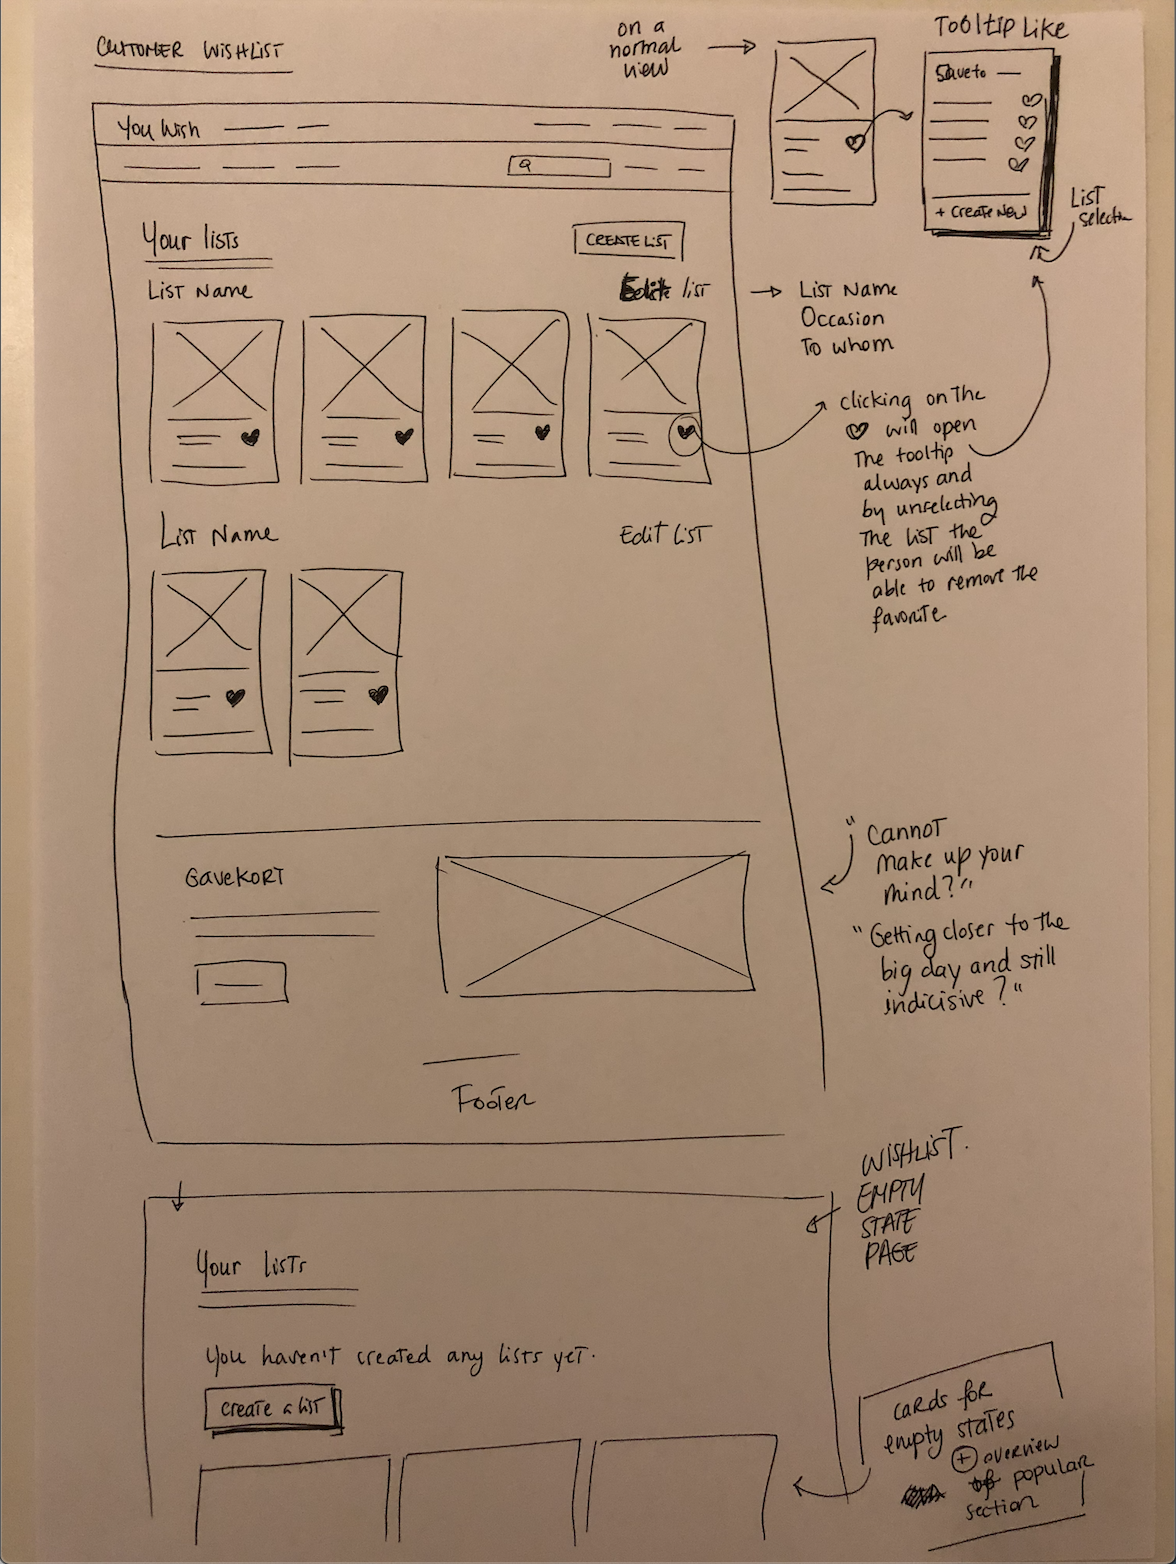 CUSTOMER WISHLIST
on a
normal
view
Tooltip Like
Save to
+ Create New
List
You Wish
Your lists
CREATE LIST
List Name
Edit list
List Name
Occasion
To whom
clicking on the
will open
The tooltip
always and
by unselecting
The list the
person will be
able to remove the
favorite
List Name
Edit List
Gavekort
"Cannot
make up your
mind?"
"Getting closer to the
big day and still
indicisive?"
Footer
WISHLIST.
EMPTY
STATE
PAGE
Your lists
You haven't created any lists yet.
Create a list
cards for
empty states
+ overview
popular
section